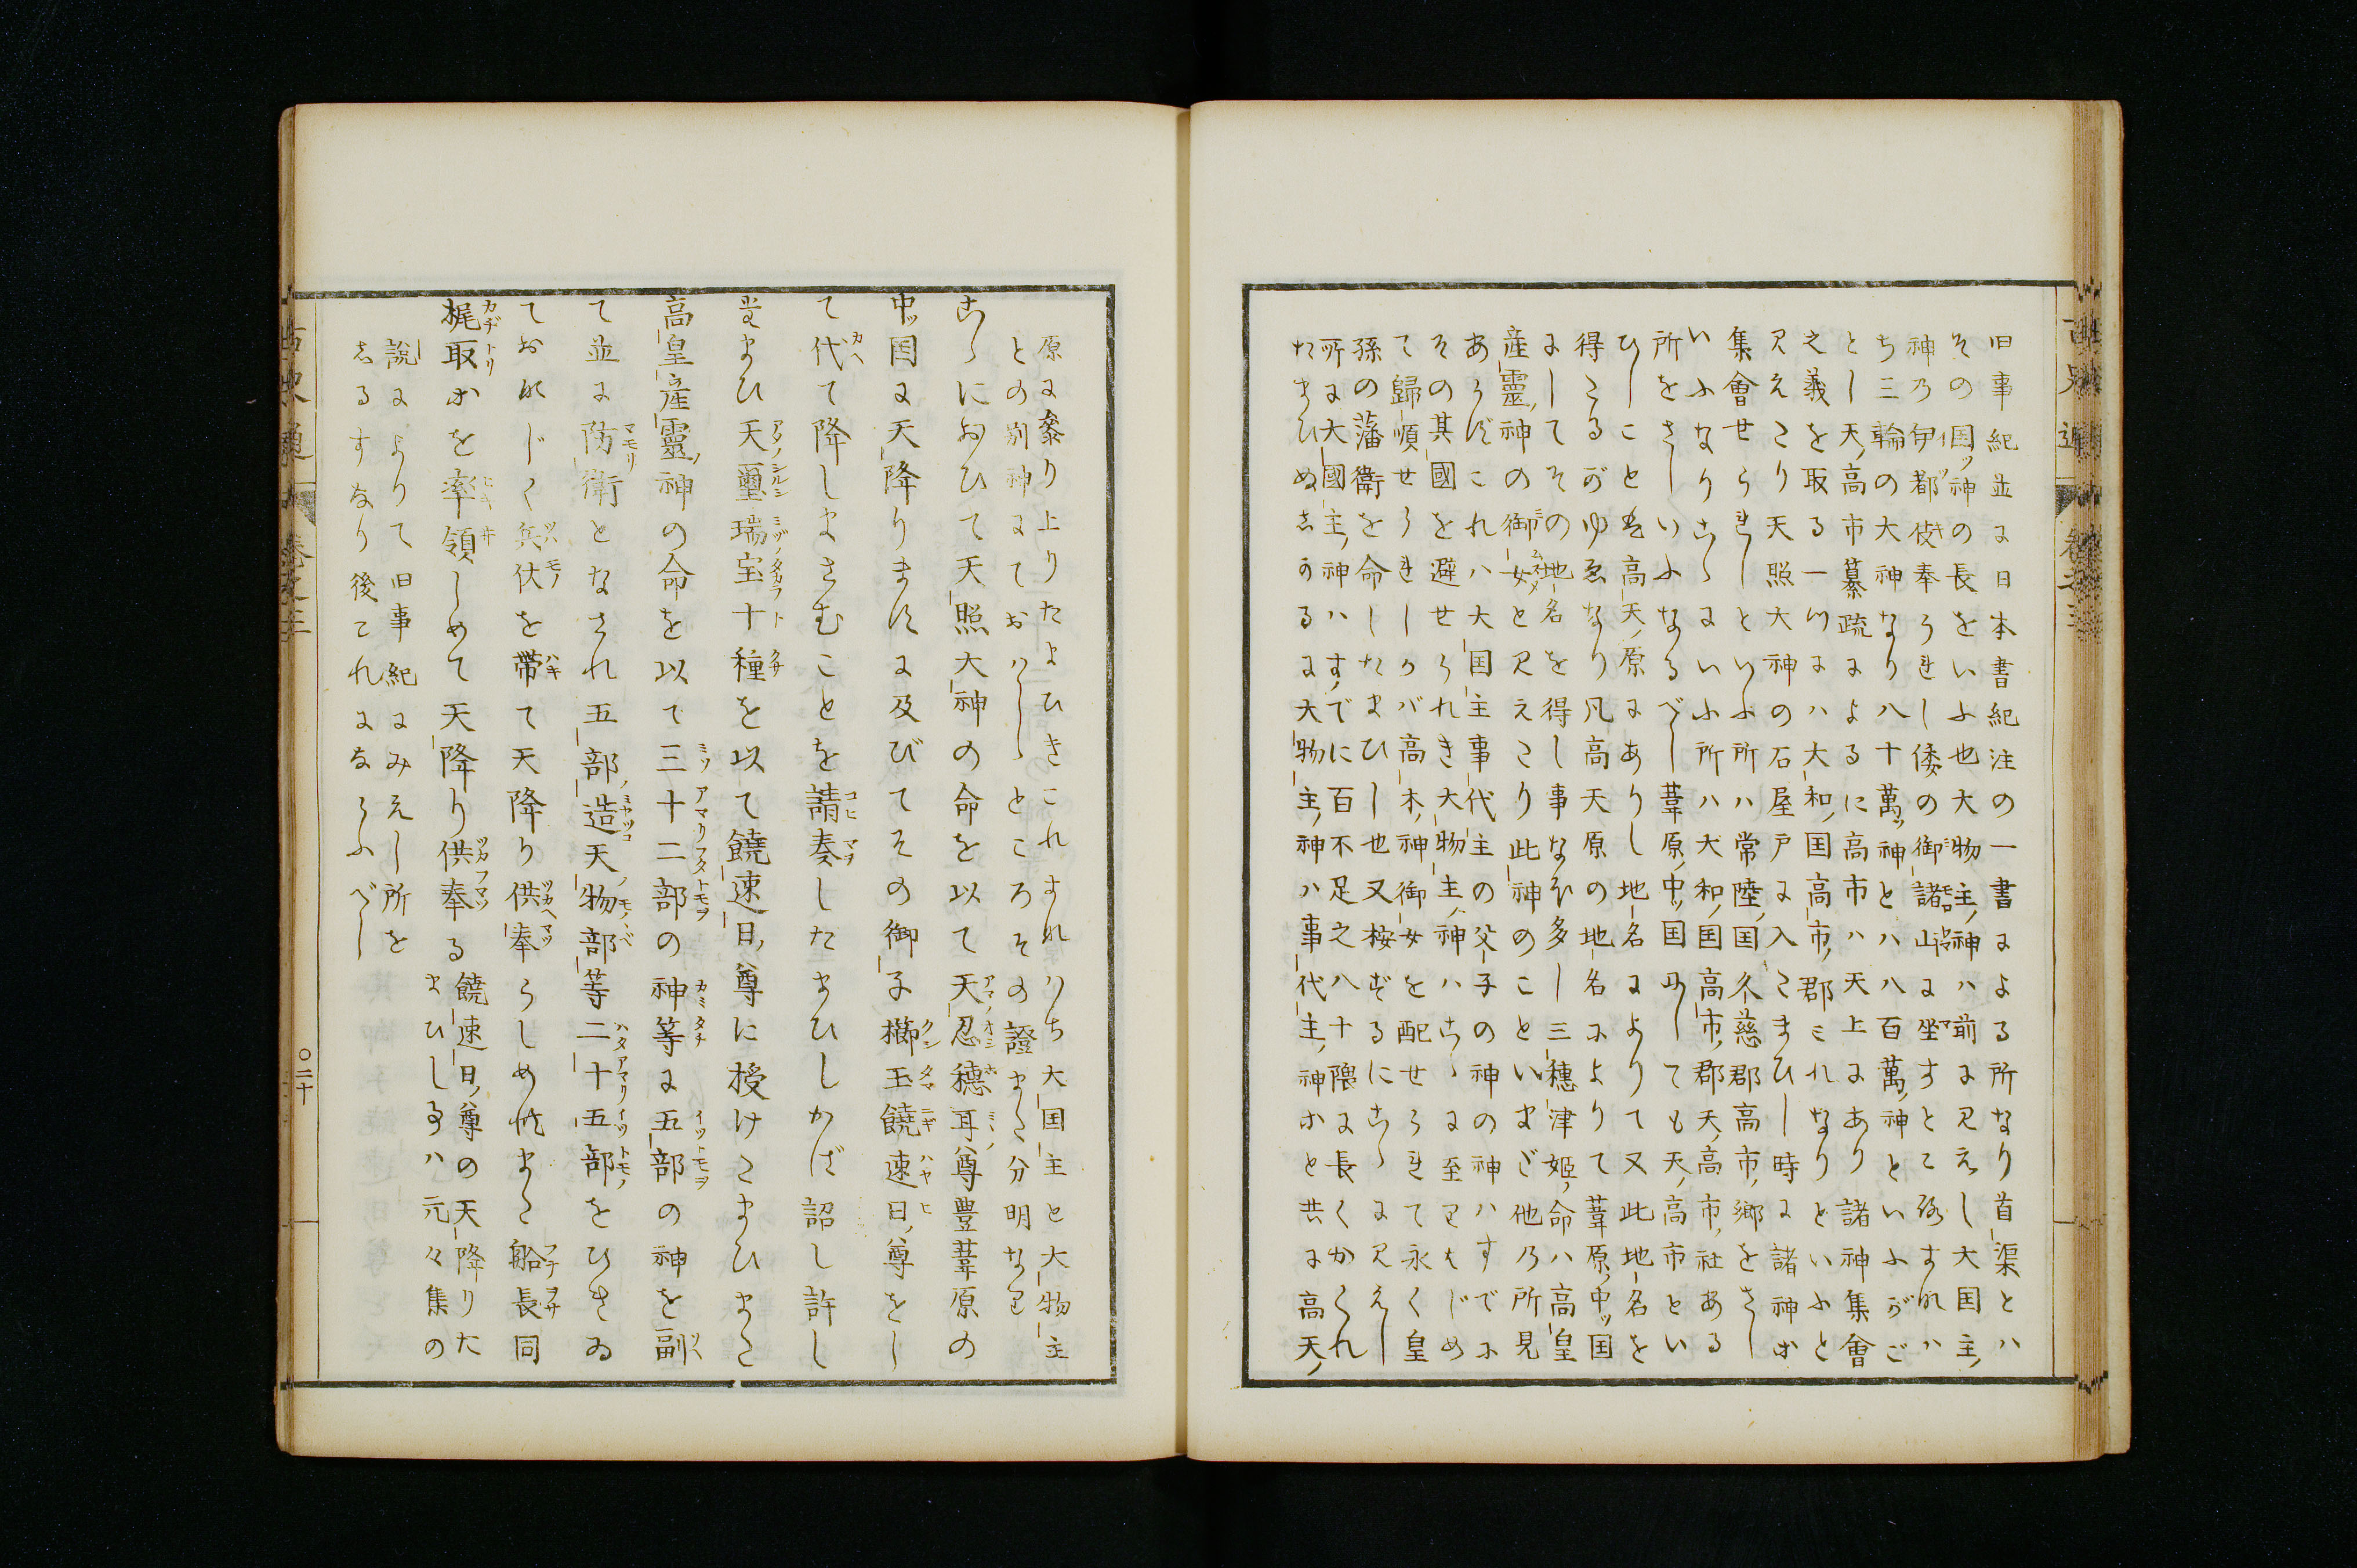 旧事紀並に日本書紀注の一書による所なり首渠とハ
その国ッ神の長をいふ也大物主ノ神ハ前に見えし大国主ノ
神乃伊都伎奉られし倭の御諸山に坐すとこ
ち三輪の大神なり八十萬ッ神とハ八百萬ノ神といふがご
とし天ノ高市纂疏によるに高市ハ天上にあり諸神集會
之義を取る一ツにハ大和ノ国高市ノ郡これなりといふと
見えたり天照大神の石屋戸に入たまひし時に諸神等
集會せられしといふ所ハ常陸ノ国久慈郡高市ノ郷をさし
いふなりこゝにいふ所ハ大和ノ国高市ノ郡天ノ高市ノ社ある
所をさしいふなるべし葦原ノ中ッ国にしても天ノ高市とい
ひしことも高天ノ原にありし地名によりて又此地名を
得たるがゆゑなり凡高天原の地名によりて葦原ノ中ッ国
にしてその地名を得し事なを多し三穂津姫ノ命ハ高皇
産霊ノ神の御女と見えたり此神のことハいまだ他乃所見
あらずこれハ大国主事代主の父子の神の神ハすでに
その其國を避せられき大物主ノ神ハこゝに至りはじめ
て歸順せられしかバ高木ノ神御女を配せられて永く皇
孫の藩衛を命したまひし也又桉ずるにこゝに見えし
所に大國主ノ神ハすでに百不足之八十隈に長くかくれ
たまひぬしかるに大物主ノ神ハ事代主ノ神等と共に高天ノ
原に参り上りたまひきこれすなハち大国主と大物主
との別神にておハしゝところその證また分明なり
こゝにおひて天照大神の命を以て天忍穂耳尊豊葦原の
中ッ国に天降りますに及びてその御子櫛玉饒速日ノ尊をし
て代て降しまさむことを請奏したまひしかば詔し許し
たまひ天璽瑞宝十種を以て饒速日ノ尊に授けたまひまた
高皇産霊ノ神の命を以て三十二部の神等に五部の神を副
て並に防衛となされ五部ノ造天ノ物部等二十五部をひきゐ
ておなじく兵仗を帯て天降り供奉らしめ給またた船長同
梶取等を率領しめて天降り供奉る
饒速日ノ尊の天降りた
まひし事ハ元々集の
説によりて旧事紀にみえし所を
しるすなり後これにならふべし
古史通
巻之三
〇二十